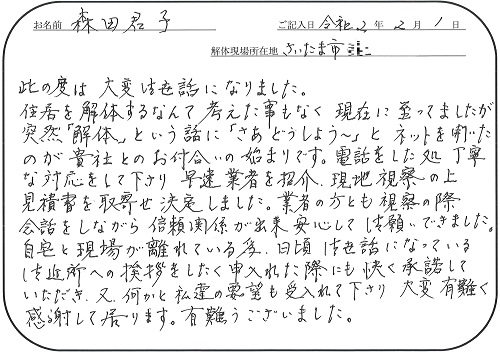 お名前 森田君子 ご記入日 令和2年2月1日
解体現場所在地 さいたま市
此の度は大変お世話になりました。
住居を解体するなんて考えた事もなく現在に至ってましたが
突然「解体」という話に「さあどうしよう〜」とネットを開いた
のが貴社とのお付合いの始まりです。電話をした処丁寧
な対応をして下さり早速業者を紹介、現地視察の上
見積書を取寄せ決定しました。業者の方とも視察の際
会話をしながら信頼関係が出来安心してお願いできました。
自宅と現場が離れている為、日頃お世話になっている
お近所への挨拶をしたく申入れた際にも快く承諾して
いただき、又、何かと私達の要望も受入れて下さり大変有難く
感謝して居ります。有難うございました。